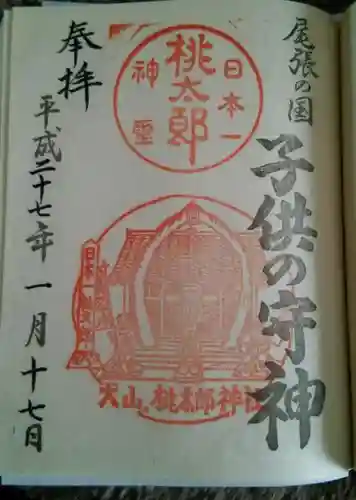 尾張の国
子供の守神
日本一
桃太郎
神霊
犬山 桃太郎神社
日本一
奉拝
平成二十七年一月十七日